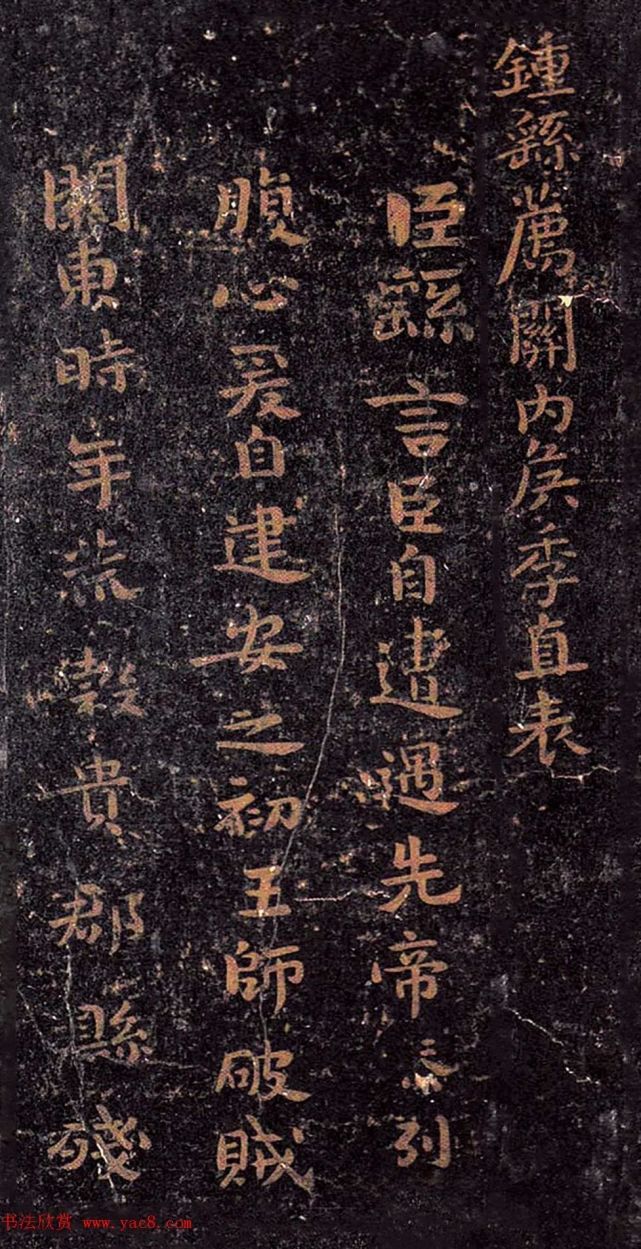 鍾繇薦關內侯季直表
臣繇言臣自遭遇先帝忝列
腹心爰自建安之初王師破賊
關東時年荒穀貴郡縣殘
书法欣赏 www.yac8.com